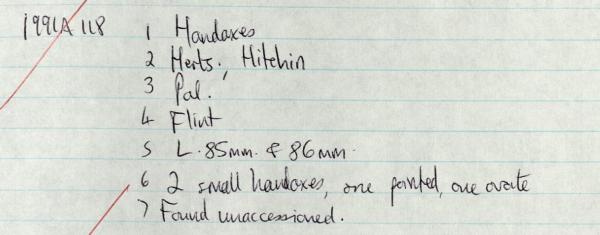 1991A 118 1 Handaxes
2 Herts. Hitchin
3 Pal.
4 Flint
5 L. 85mm. & 86mm.
6 2 small handaxes, one pointed, one ovate
7 Found unaccessioned.